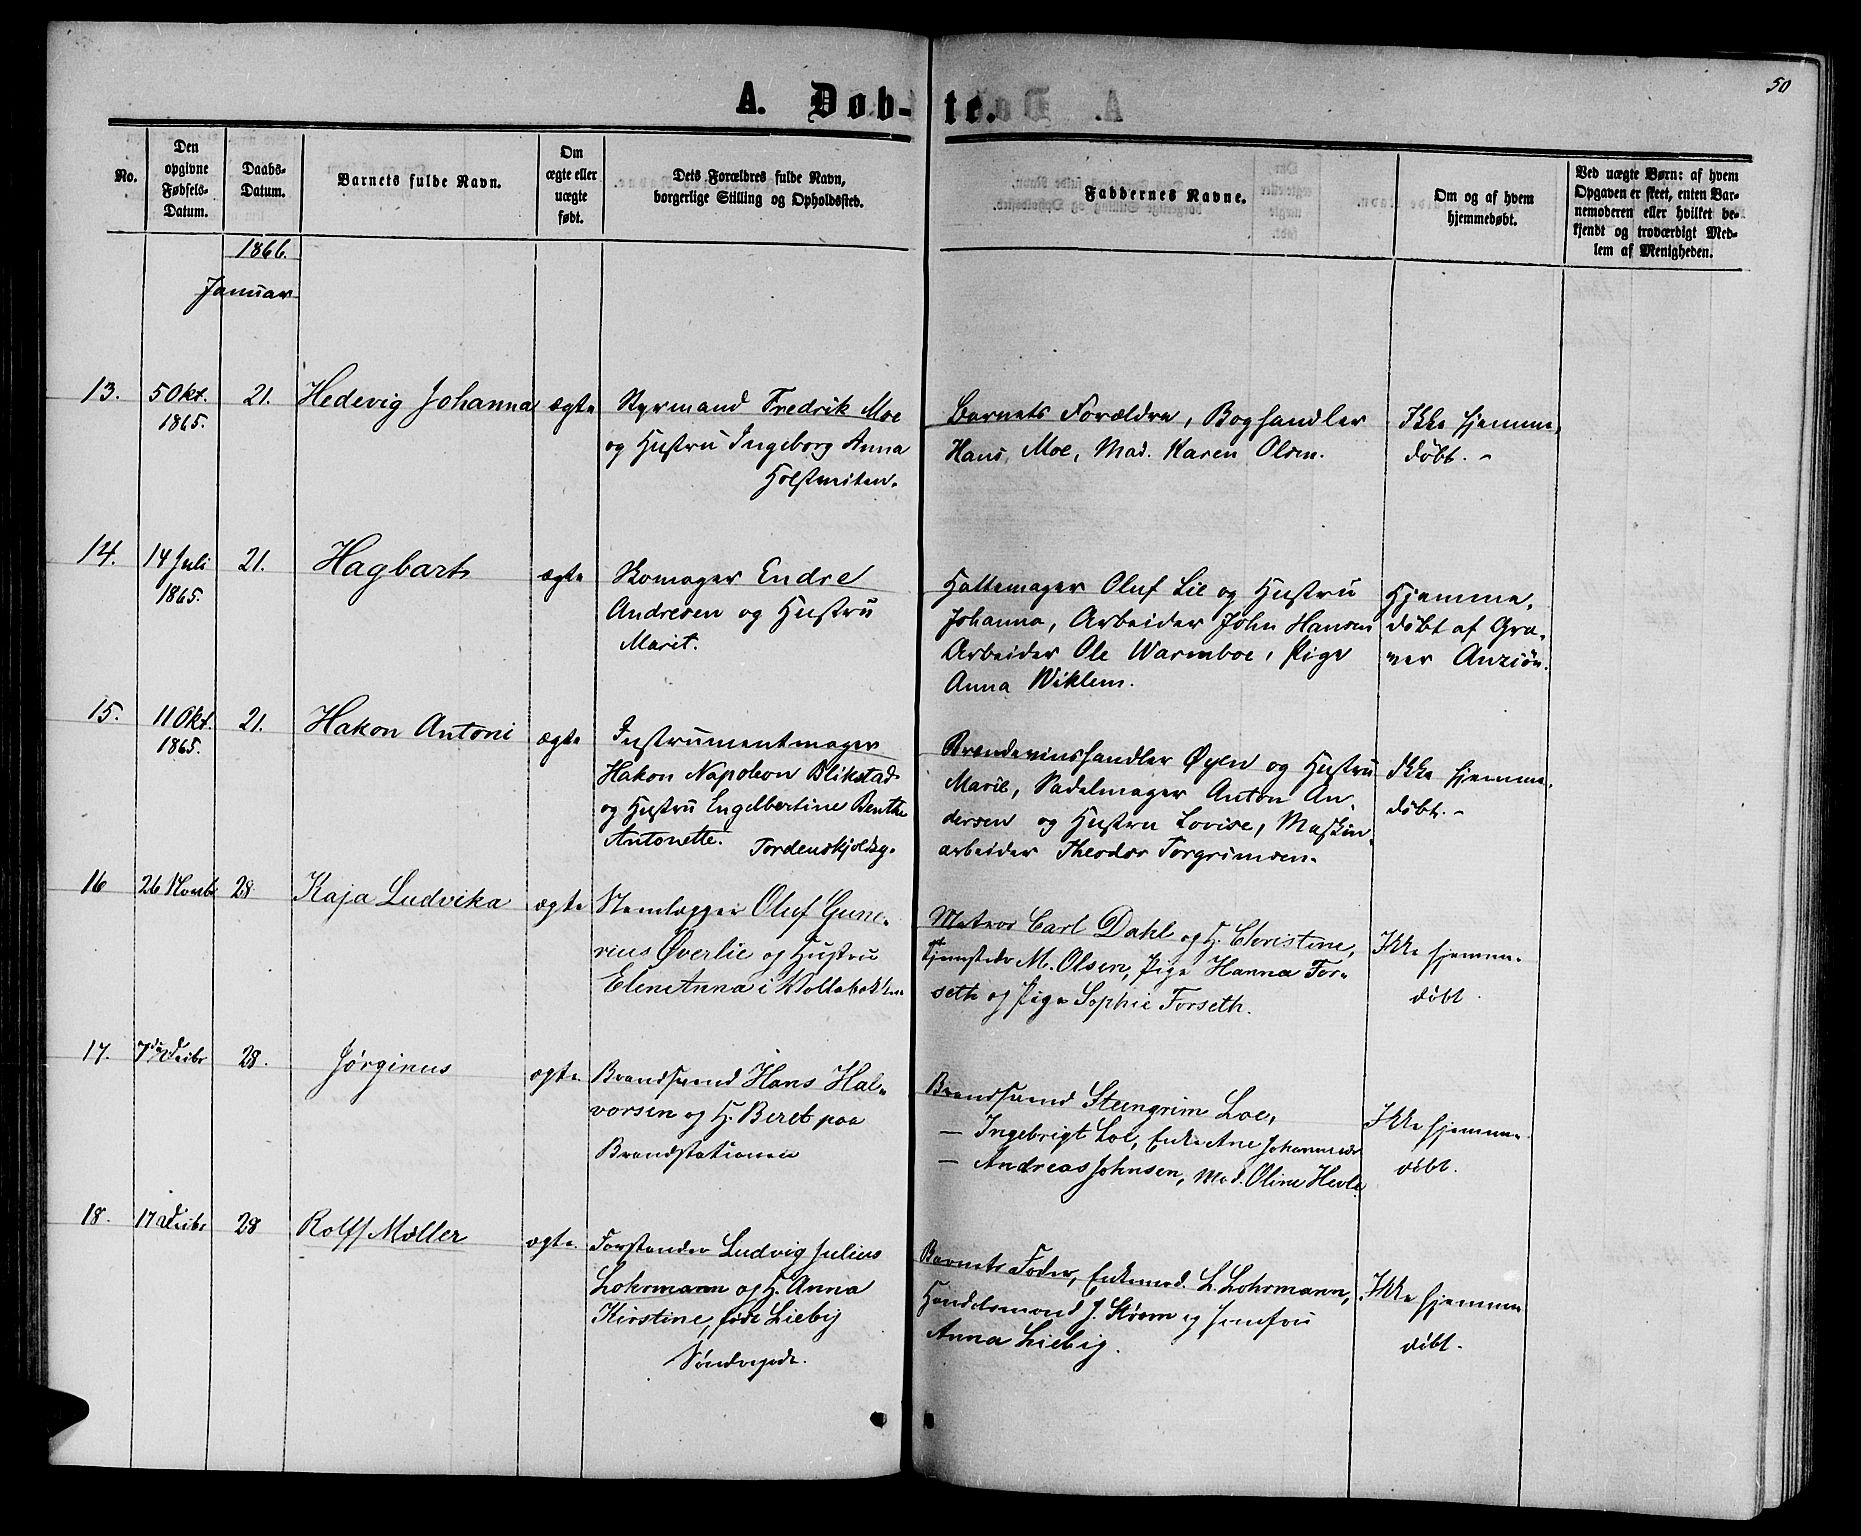 50
A. Døb-te.
No.
Den opgivne Fødsels-Datum.
Daabs-Datum.
Barnets fulde Navn.
Om ægte eller uægte født.
Dets Forældres fulde Navn, borgerlige Stilling og Opholdssted.
Faddernes Navne.
Om og af hvem hjemmedøbt.
Ved uægte Børn: af hvem Opgaven er skeet, enten Barnemoderen eller hvilket bekjendt og troværdigt Medlem af Menigheden.
1866.
Januar
13. 5 Okt. 1865. 21. Hedevig Johanna ægte
Styrmand Fredrik Moe
og Hustru Ingeborg Anna
Barnets Forældre, Boghandler
Hans Moe, Mad. Karen Olsen.
Ikke hjemme-
døbt. -
14. 14 Juli 1865. 21. Hagbart ægte
Skomager Endre
Andresen og Hustru
Marit.
Hattemager Oluf Lie og Hustru
Johanna, Arbeider John Hansen
Arbeider Ole Warmboe, Pige
Anna Wiklem.
Hjemme-
døbt af Gra-
ver
15. 11 Okt. 1865. 21. Hakon Antoni ægte
Instrumentmager
Hakon Napoleon Blikstad
og Hustru Engelbertine Benthe
Antonette. Tordenskjoldsg.
Brændevinshandler Øyen og Hustru
Marie, Sadelmager Anton An-
dersen og Hustru Lovise, Maskin-
arbeider Theodor Torgrimsen.
Ikke hjemme-
døbt. -
16 26 Novbr 28 Kaja Ludvika ægte
Stenlægger Oluf Gune-
rius Øverlie og Hustru
Elen Anna i
Matros Carl Dahl og H. Christine,
M. Olsen, Pige Hanna For-
seth og Pige Sophie Forseth.
Ikke hjemme-
døbt.
17. 7de Decbr 28. Jørginus ægte.
Brandsvend Hans Hal-
vorsen og H. Beret paa
Brandstationen
Brandsvend Steingrim Loe,
— Ingebrigt Loe, Enke Ane
— Andreas Johnsen, Mad. Oline
Ikke hjemme-
døbt.
18. 17 Decbr 28 Rolf Møller ægte.
Forstander Ludvig Julius
Lohrmann og H. Anna
Kirstine, føde Liebig
Barnets Fader, Enkemad. L. Lohrmann,
Handelsmand J. Storm og Jomfru
Anna Liebig.
Ikke hjemme
døbt.